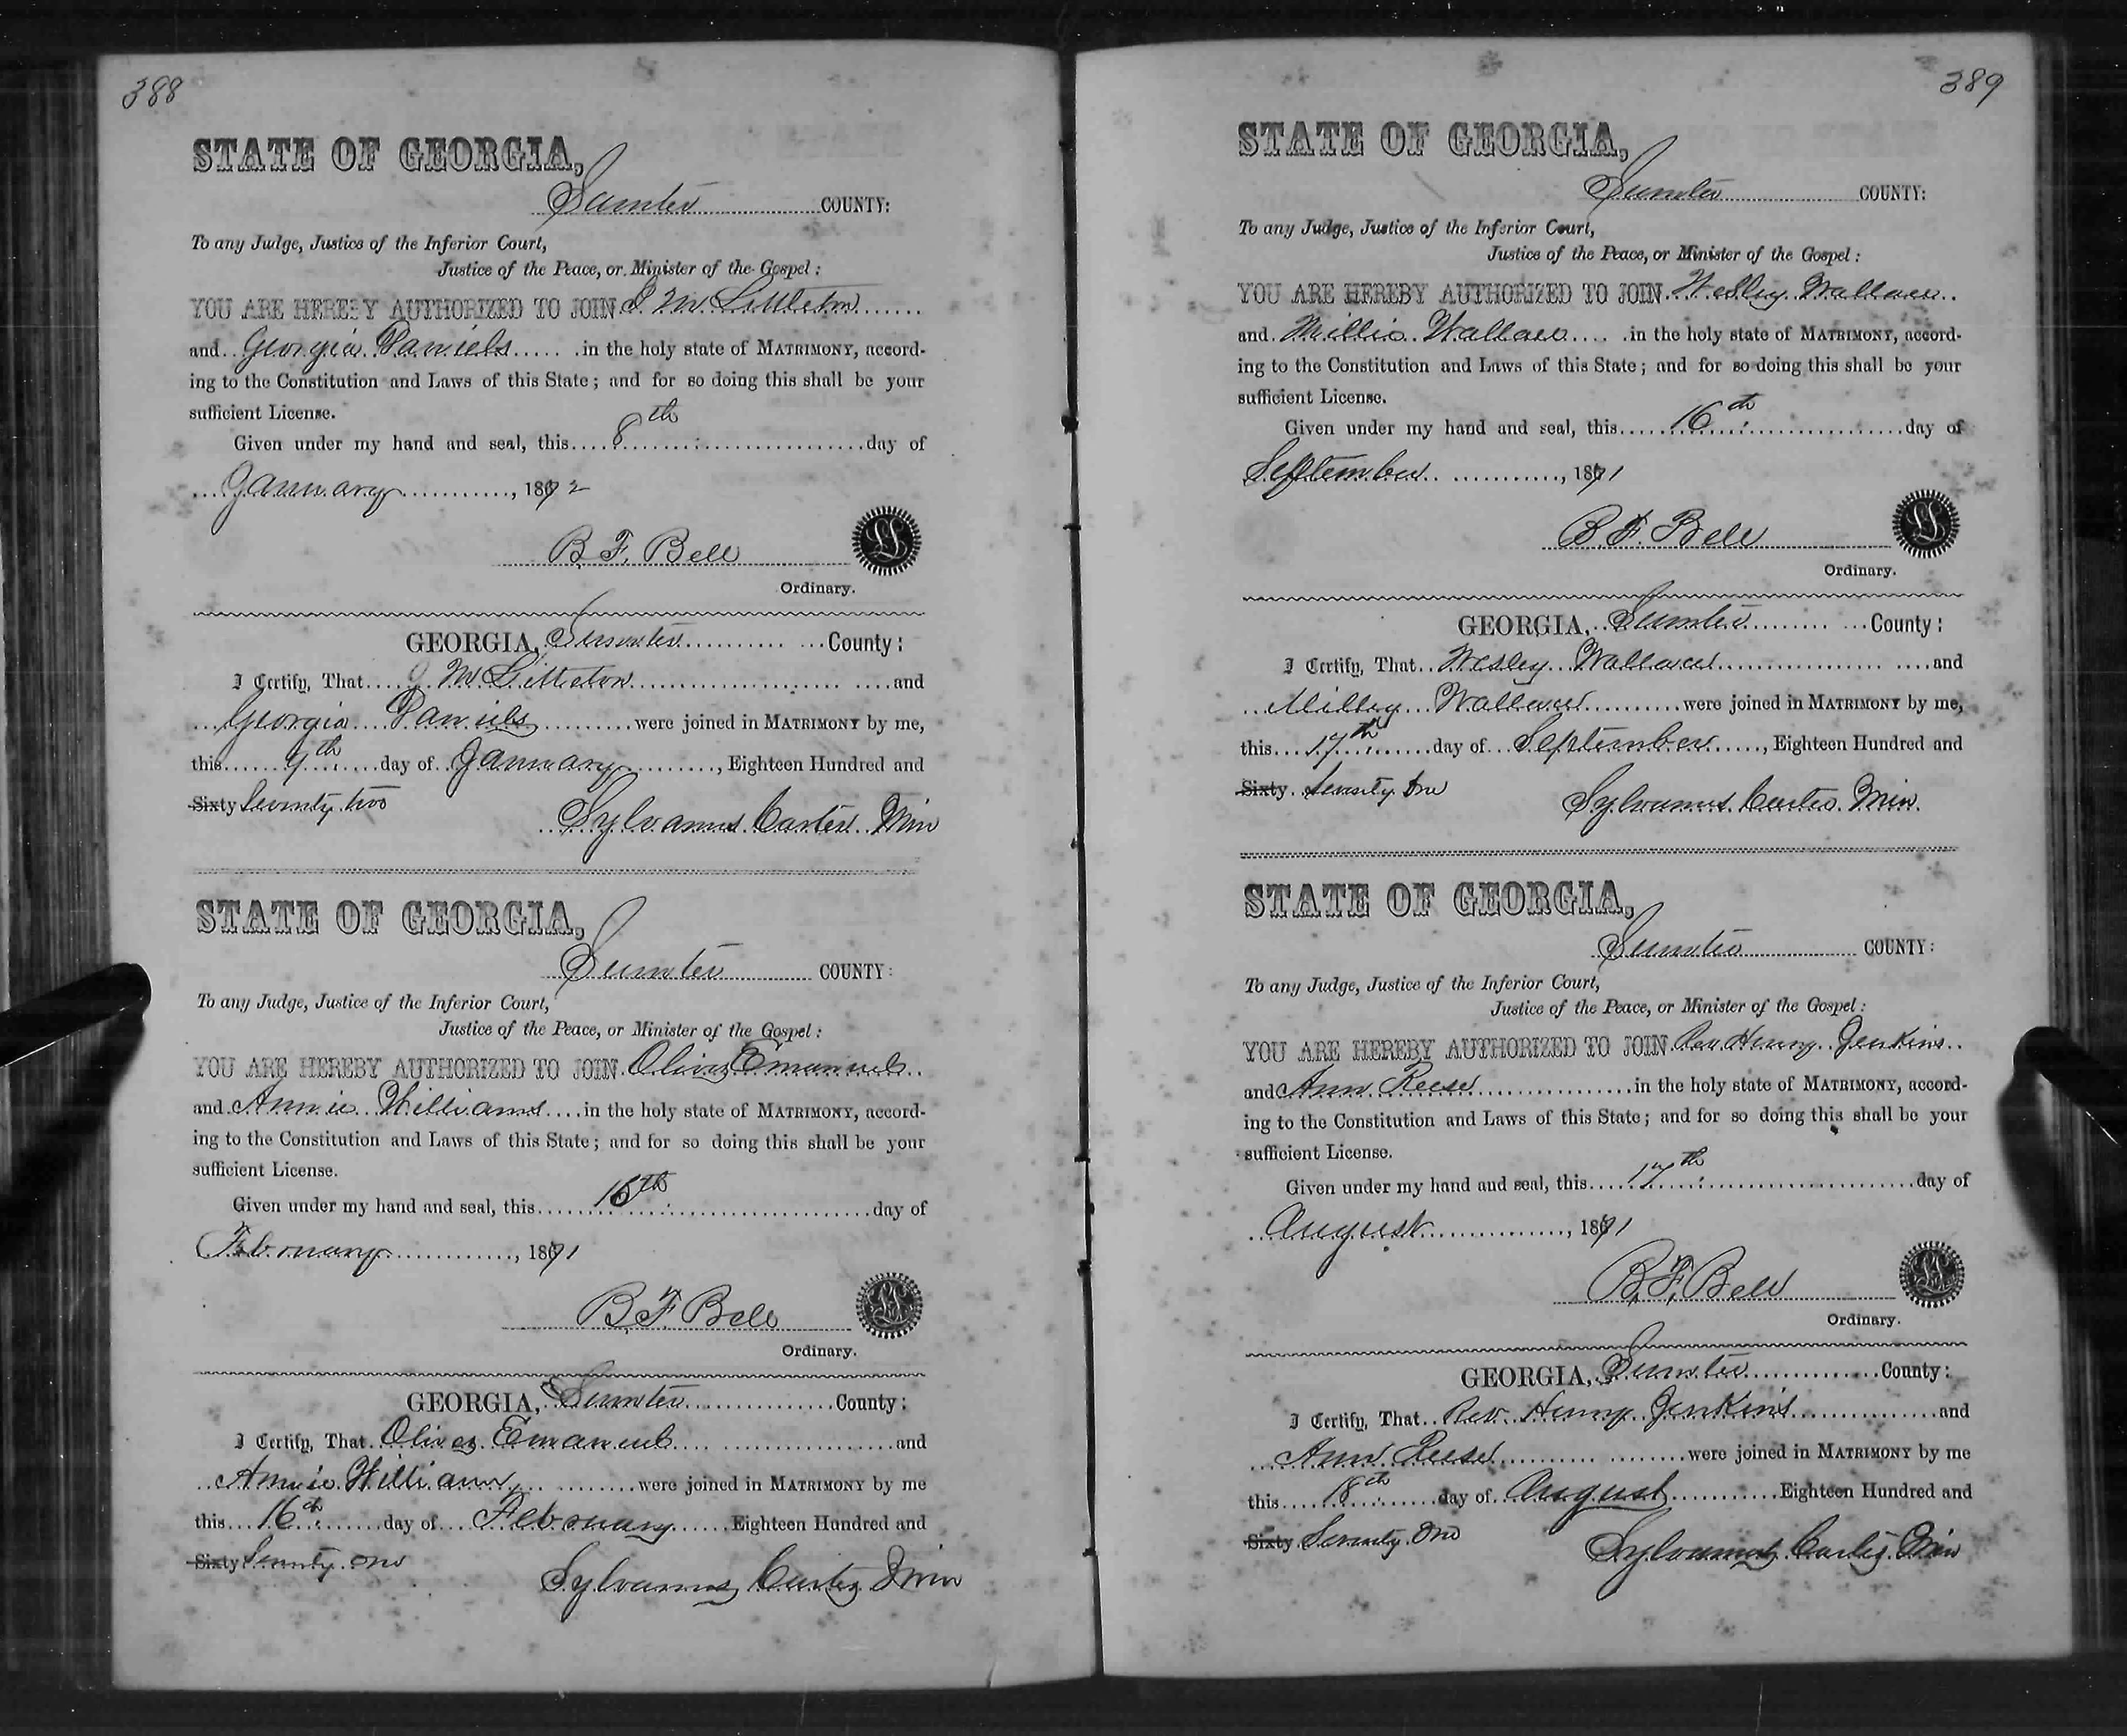 388
STATE OF GEORGIA,
Sumter COUNTY:
To any Judge, Justice of the Inferior Court,
Justice of the Peace, or Minister of the Gospel:
YOU ARE HEREBY AUTHORIZED TO JOIN J M Littleton
and Georgia Daniels in the holy state of MATRIMONY, accord-
ing to the Constitution and Laws of this State; and for so doing this shall be your
sufficient License.
Given under my hand and seal, this 8th day of
January, 1872
B. F. Bell
Ordinary.
GEORGIA, Sumter County:
I Certify, That J M Littleton and
Georgia Daniels were joined in MATRIMONY by me,
this 9th day of January, Eighteen Hundred and
Sixty Seventy two
Sylvanus Carter Min
STATE OF GEORGIA,
Sumter COUNTY:
To any Judge, Justice of the Inferior Court,
Justice of the Peace, or Minister of the Gospel:
YOU ARE HEREBY AUTHORIZED TO JOIN Oliver Emanuels
and Annie Williams in the holy state of MATRIMONY, accord-
ing to the Constitution and Laws of this State; and for so doing this shall be your
sufficient License.
Given under my hand and seal, this 16th day of
February, 1871
B. F. Bell
Ordinary.
GEORGIA, Sumter County:
I Certify, That Oliver Emanuels and
Annie Williams were joined in MATRIMONY by me
this 16th day of February Eighteen Hundred and
Sixty Seventy one
Sylvanus Carter Min
389
STATE OF GEORGIA,
Sumter COUNTY:
To any Judge, Justice of the Inferior Court,
Justice of the Peace, or Minister of the Gospel:
YOU ARE HEREBY AUTHORIZED TO JOIN Wesley Wallace
and Millie Wallace in the holy state of MATRIMONY, accord-
ing to the Constitution and Laws of this State; and for so doing this shall be your
sufficient License.
Given under my hand and seal, this 16th day of
September, 1871
B. F. Bell
Ordinary.
GEORGIA, Sumter County:
I Certify, That Wesley Wallace and
Milley Wallace were joined in MATRIMONY by me,
this 17th day of September, Eighteen Hundred and
Sixty Seventy One
Sylvanus Carter Min.
STATE OF GEORGIA,
Sumter COUNTY:
To any Judge, Justice of the Inferior Court,
Justice of the Peace, or Minister of the Gospel:
YOU ARE HEREBY AUTHORIZED TO JOIN Rev Henry Jenkins
and Ann Reese in the holy state of MATRIMONY, accord-
ing to the Constitution and Laws of this State; and for so doing this shall be your
sufficient License.
Given under my hand and seal, this 17th day of
August, 1871
B. F. Bell
Ordinary.
GEORGIA, Sumter County:
I Certify, That Rev. Henry Jenkins and
Ann Reese were joined in MATRIMONY by me
this 18th day of August Eighteen Hundred and
Sixty Seventy One
Sylvanus Carter Min